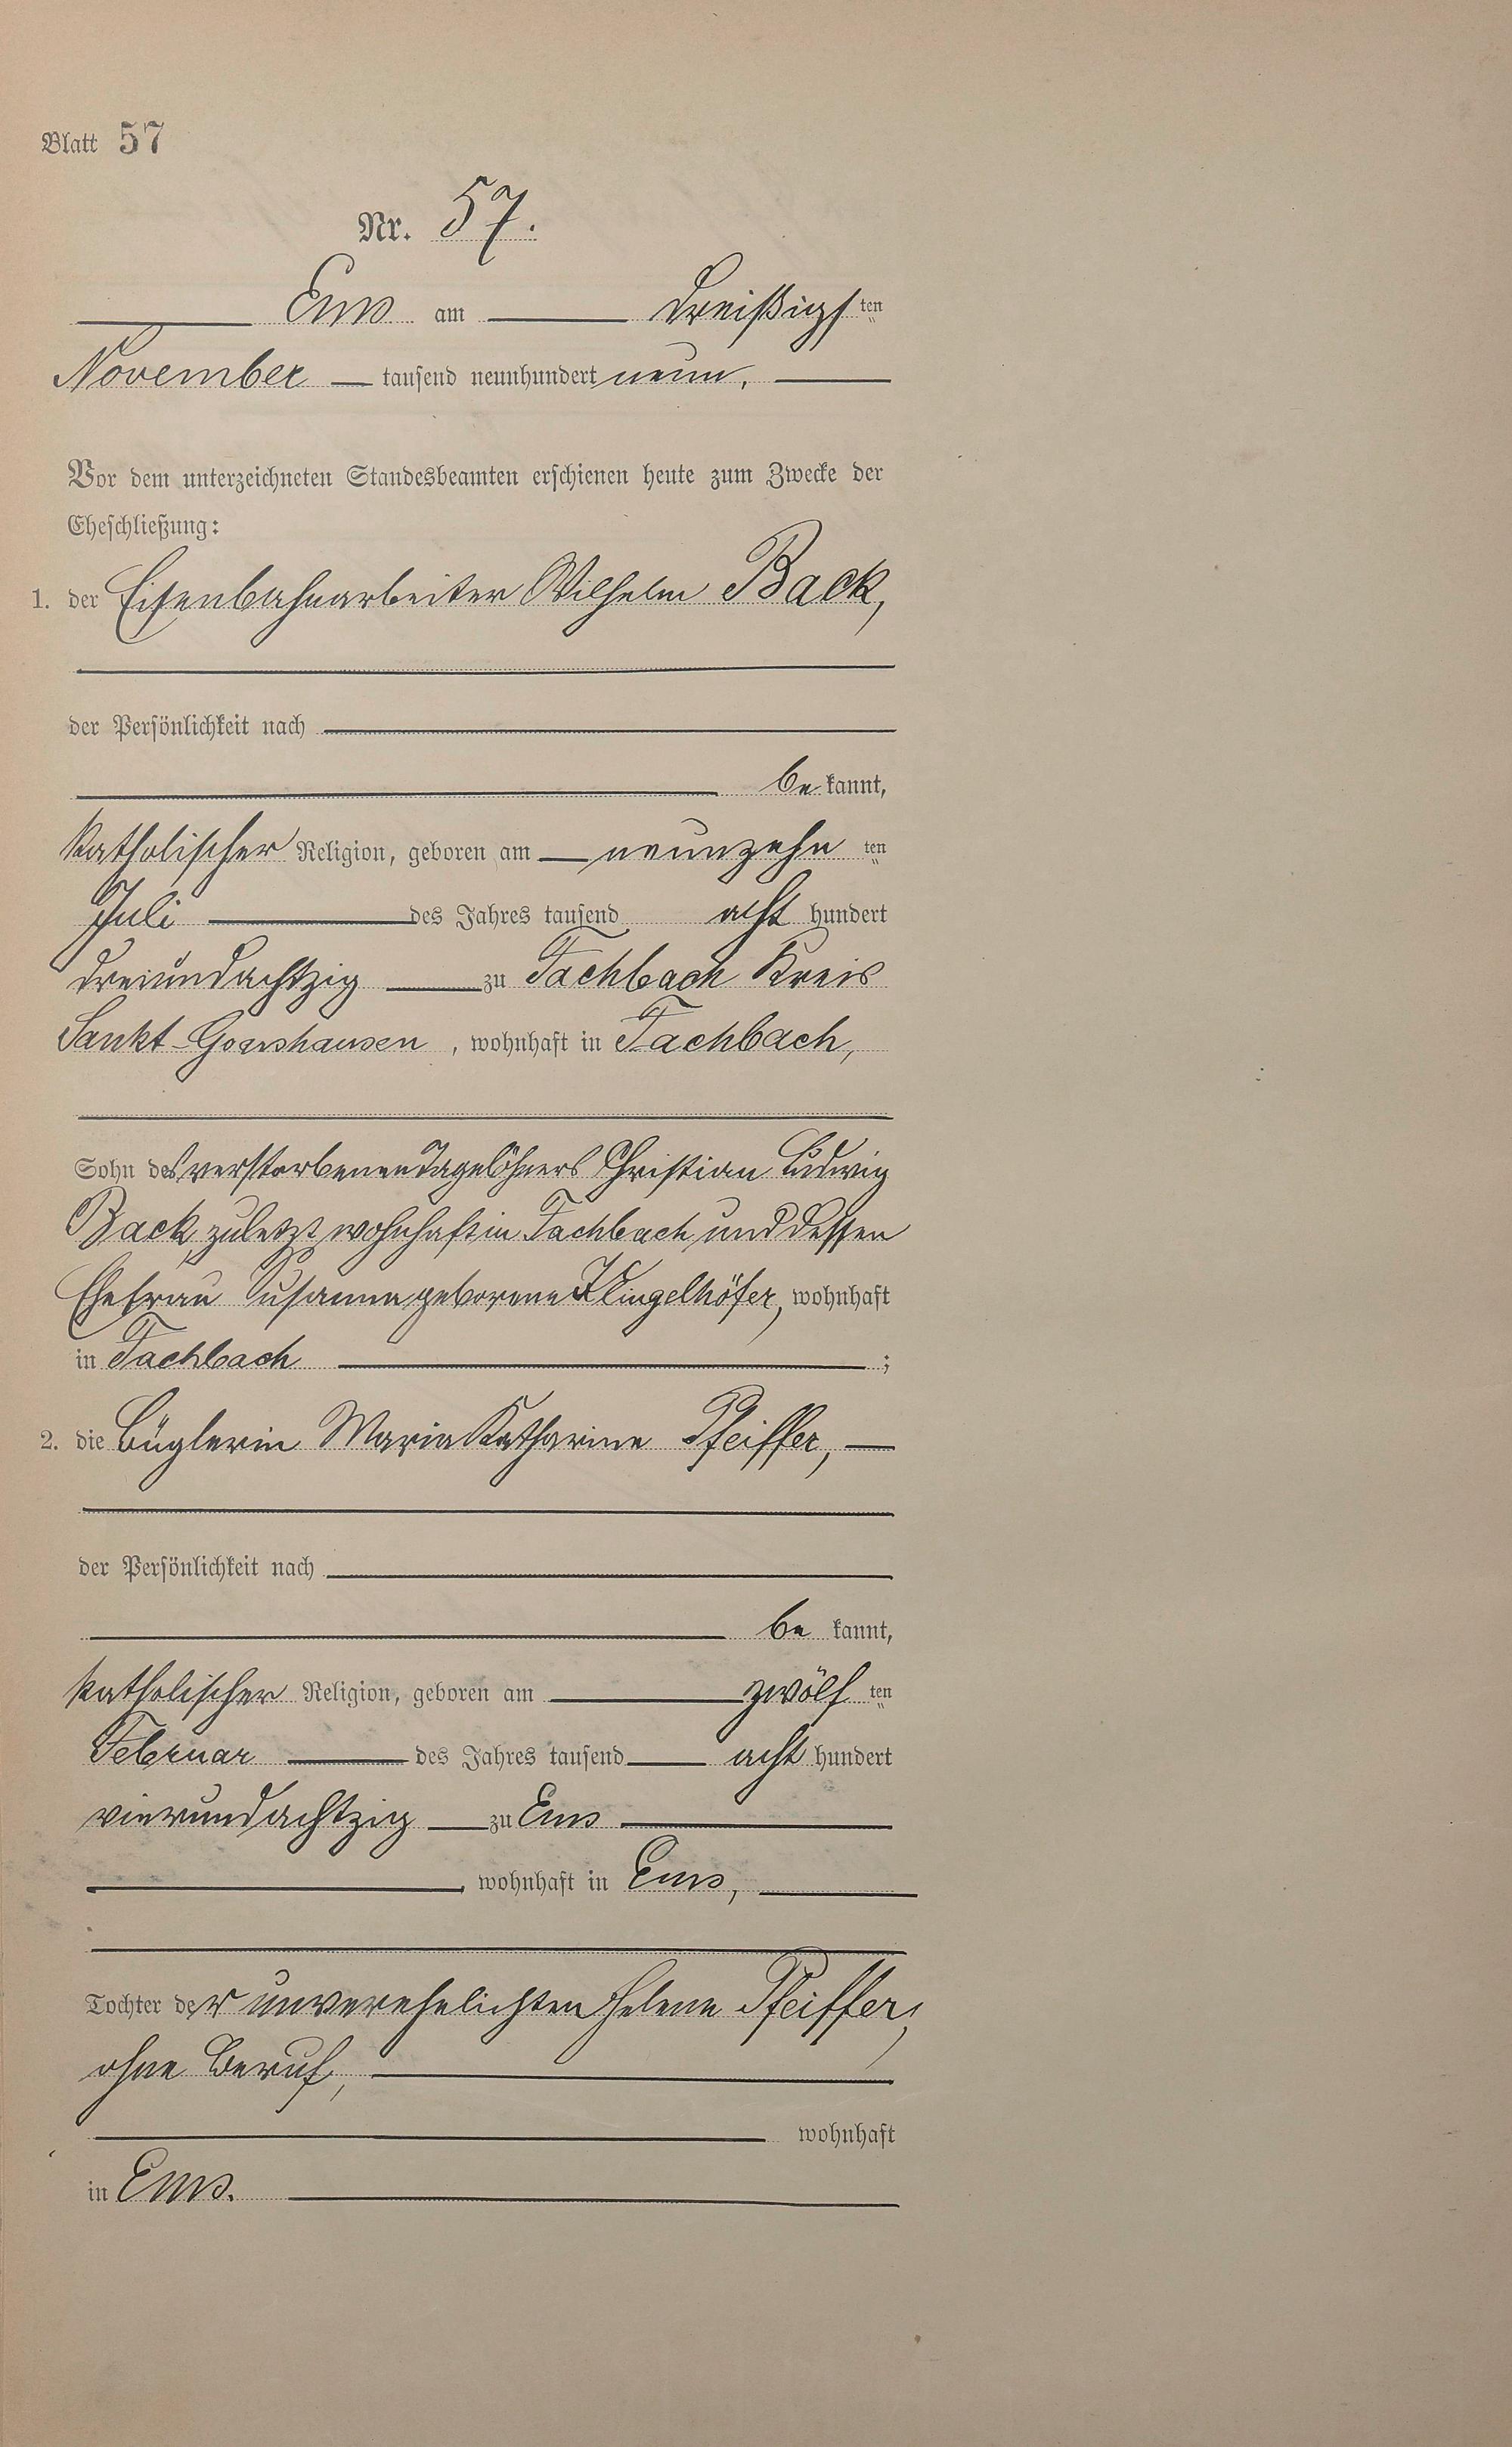 Blatt 57
Nr. 57.
Ems am dreißigsten
November tausend neunhundert neun.
Vor dem unterzeichneten Standesbeamten erschienen heute zum Zwecke der
Eheschließung:
1. der Eisenbahnarbeiter Wilhelm Back,
der Persönlichkeit nach
bekannt,
katholischer Religion, geboren am neunzehnten
Juli des Jahres tausend achthundert
dreiundachtzig zu Fachbach Kreis
Sankt-Goarshausen, wohnhaft in Fachbach,
Sohn des verstorbenen Tagelöhners Christian Ludwig
Back, zuletzt wohnhaft in Fachbach und dessen
Ehefrau Susanna geborene Klingelhöfer, wohnhaft
in Fachbach ;
2. die Büglerin Maria Katharina Pfeiffer,
der Persönlichkeit nach
bekannt,
katholischer Religion, geboren am zwölften
Februar des Jahres tausend achthundert
vierundachtzig zu Ems
, wohnhaft in Ems,
Tochter der unverehelichten Helene Pfeiffer,
ohne Beruf,
wohnhaft
in Ems.